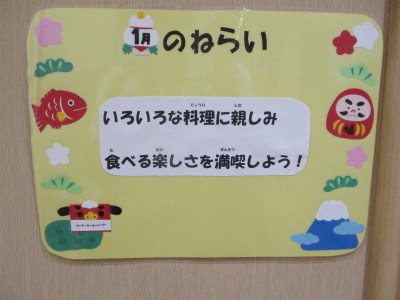 1月のねらい
いろいろな料理に親しみ
食べる楽しさを満喫しよう！